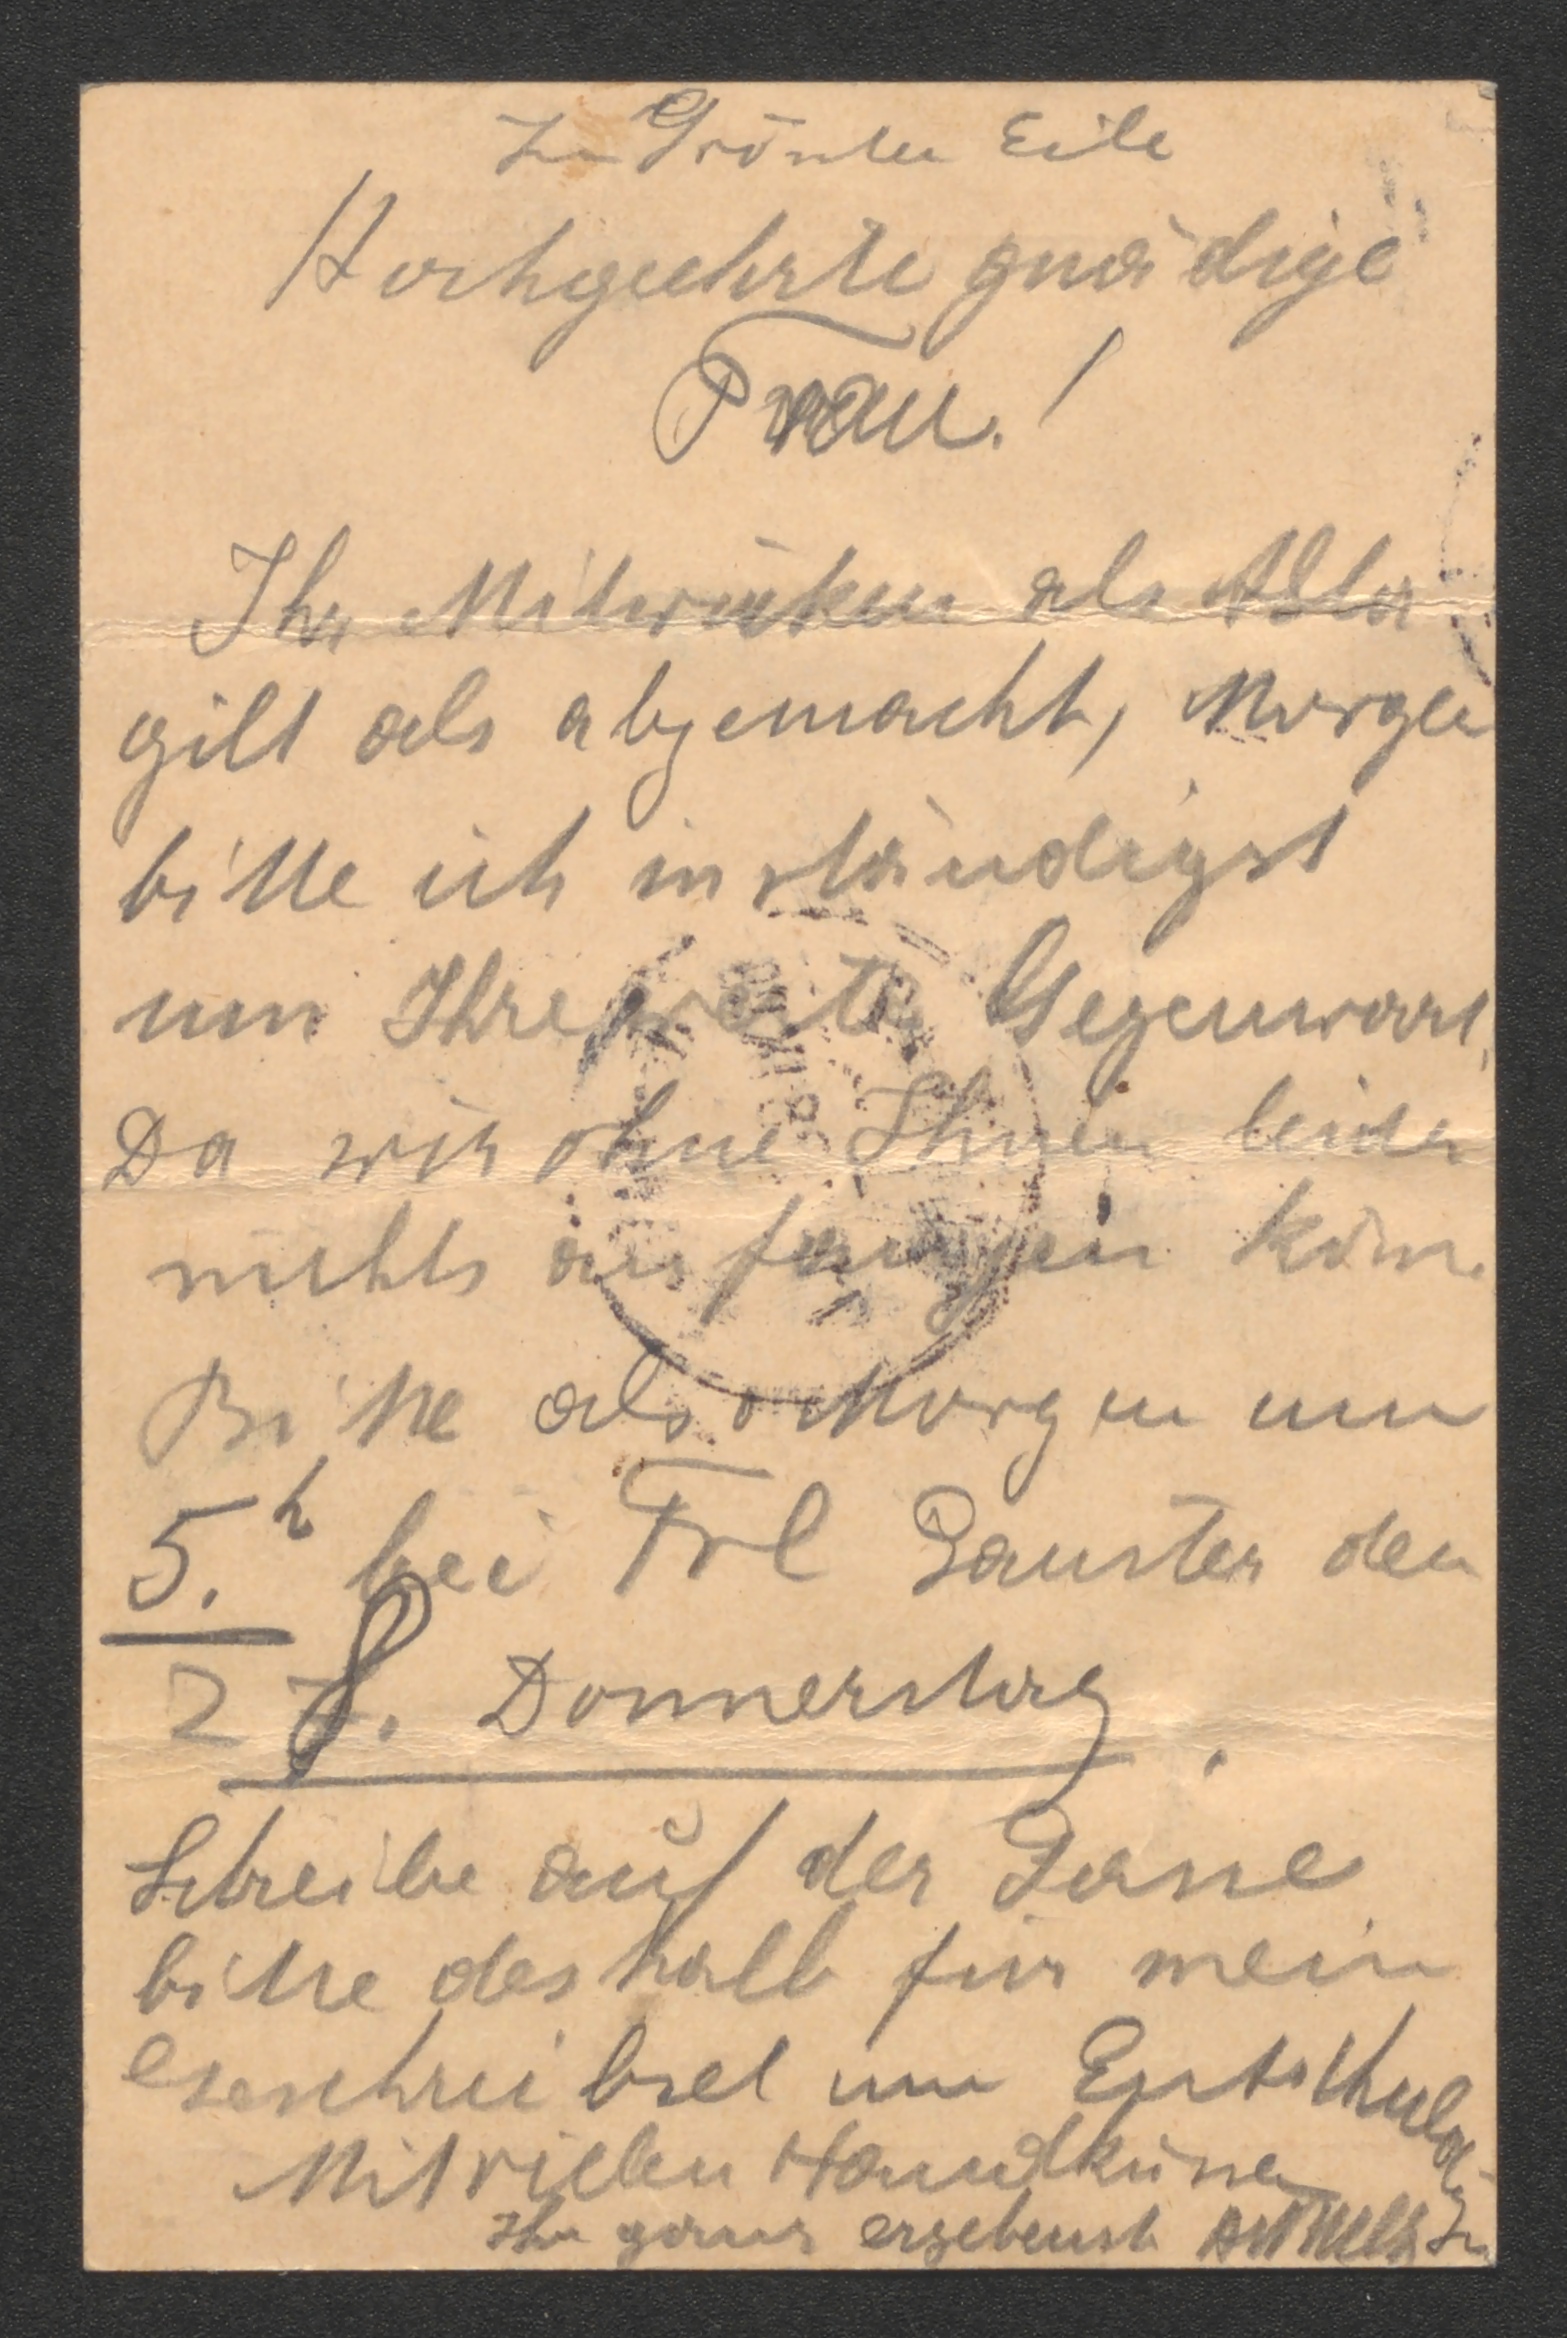 In Grösster Eile
Hochgeehrte gnädige
Frau!
Ihr Mitwirken als
gilt als abgemacht, Morgen
bitte ich inständigst
um Ihre werte Gegenwart,
Da wir ohne Ihnen leider
nichts anfangen könn.
Bitte also Morgen um
5.h bei Frl Gauster den
28. Donnerstag.
Schreibe auf der Gasse
bitte deshalb für mein
Geschreibsel um Entschuldig
Mit vielen Handküssen
Ihr ganz ergebenst